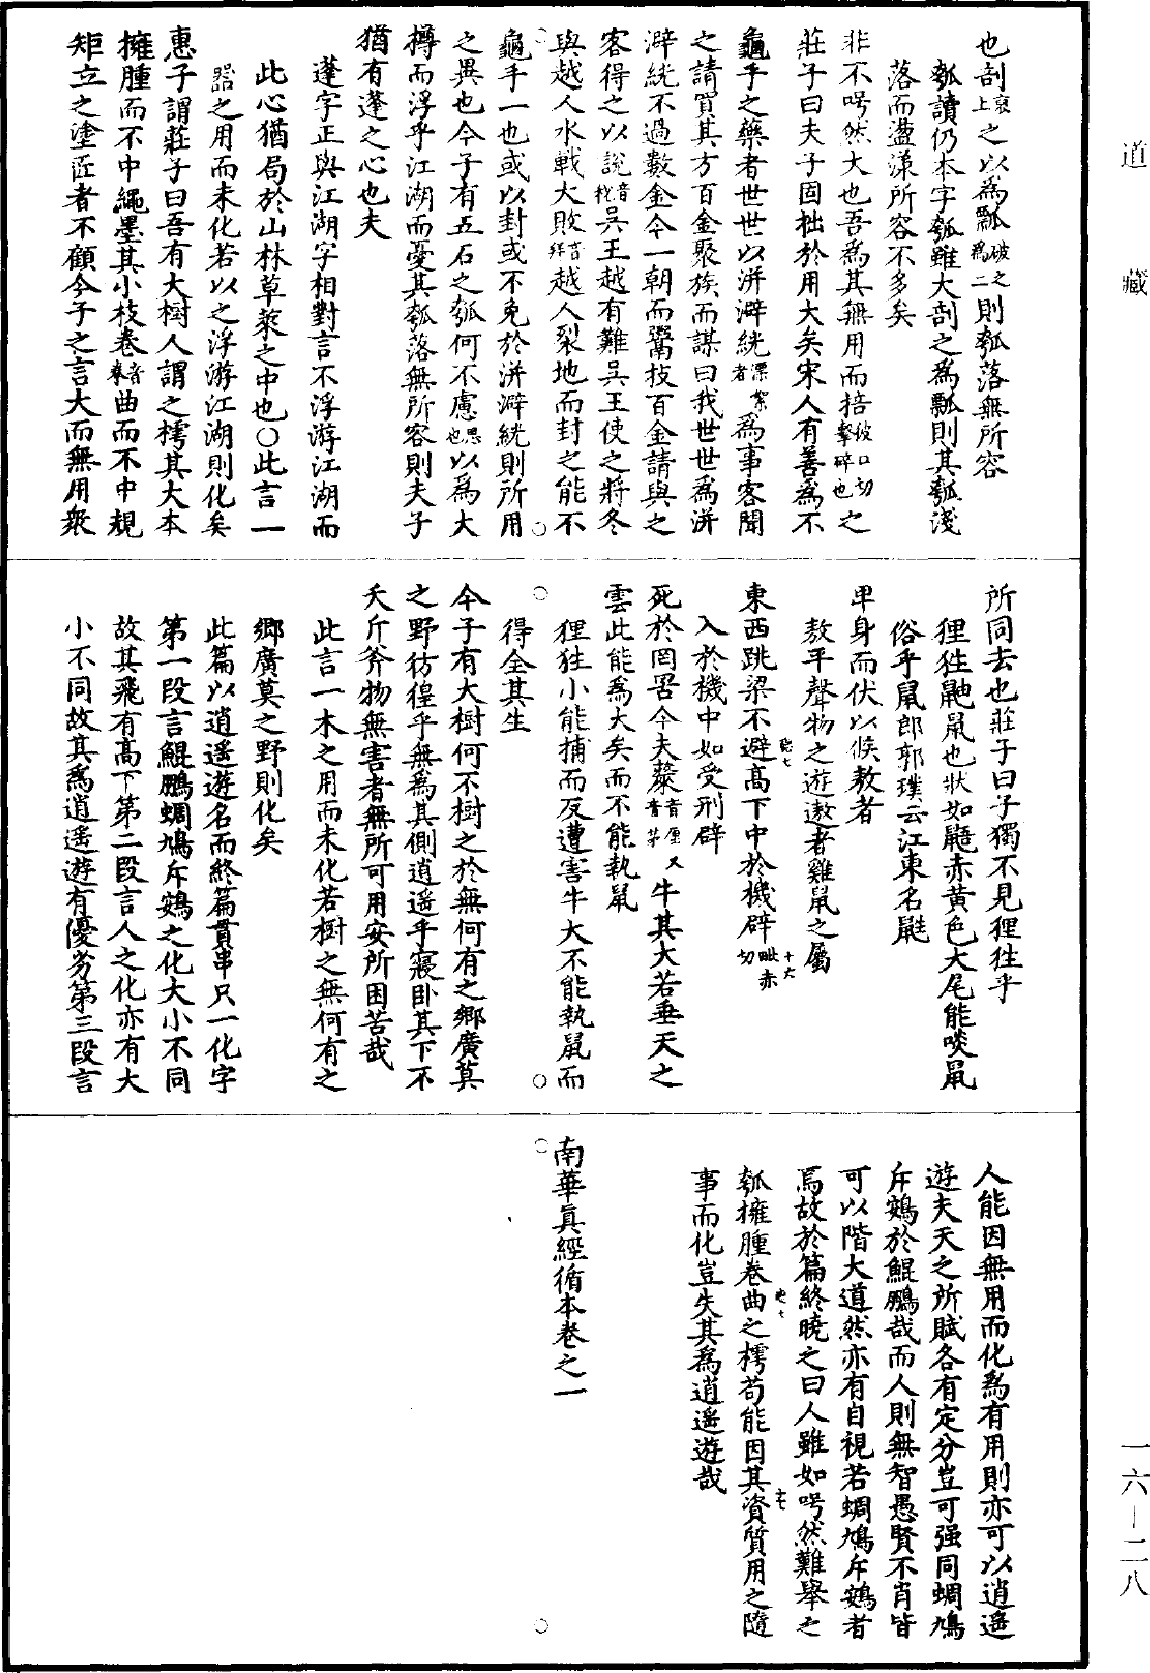 道藏
也剖上衮之以為瓢破之為二則瓠落無所容
瓠讀仍本字瓠雖大剖之為瓢則其瓠淺
落而盪漾所容不多矣
非不呺然大也吾為其無用而掊彼口切擊碎也之
莊子曰夫子固拙於用大矣宋人有善為不
龜手之藥者世世以洴澼絖漂絮者為事客聞
之請買其方百金聚族而謀曰我世世為洴
澼絖不過數金今一朝而鬻技百金請與之
客得之以說音稅吳王越有難吳王使之將冬
與越人水戰大敗音拜越人裂地而封之能不
龜手一也或以封或不免於洴澼絖則所用
之異也今子有五石之瓠何不慮思也以為大
樽而浮乎江湖而憂其瓠落無所容則夫子
猶有蓬之心也夫
蓬字正與江湖字相對言不浮游江湖而
此心猶局於山林草萊之中也○此言一
器之用而未化若以之浮游江湖則化矣
惠子謂莊子曰吾有大樹人謂之樗其大本
擁腫而不中繩墨其小枝卷音拳曲而不中規
矩立之塗匠者不顧今子之言大而無用衆
所同去也莊子曰子獨不見狸狌乎
狸狌鼬鼠也狀如鼶赤黃色大尾能啖鼠
俗乎鼠郎郭璞云江東名鼪
卑身而伏以候敖者
敖平聲物之遊遨者雞鼠之屬
東西跳梁不避高下中於機辟毗赤切
入於機中如受刑辟
死於罔罟今夫斄音釐又音茅牛其大若垂天之
雲此能為大矣而不能執鼠
狸狌小能捕而反遭害牛大不能執鼠而
得全其生
今子有大樹何不樹之於無何有之鄉廣莫
之野彷徨乎無為其側逍遙乎寢臥其下不
夭斤斧物無害者無所可用安所困苦哉
此言一木之用而未化若樹之無何有之
鄉廣莫之野則化矣
此篇以逍遙遊名而終篇貫串只一化字
第一段言鯤鵬蜩鳩斥鷃之化大小不同
故其飛有高下第二段言人之化亦有大
小不同故其為逍遙遊有優劣第三段言
人能因無用而化為有用則亦可以逍遙
遊夫天之所賦各有定分豈可强同蜩鳩
斥鷃於鯤鵬哉而人則無智愚賢不肖皆
可以階大道然亦有自視若蜩鳩斥鷃者
焉故於篇終曉之曰人雖如呺然難舉之
瓠擁腫卷曲之樗苟能因其資質用之隨
事而化豈失其為逍遙遊哉
南華真經循本卷之一
一六—二八